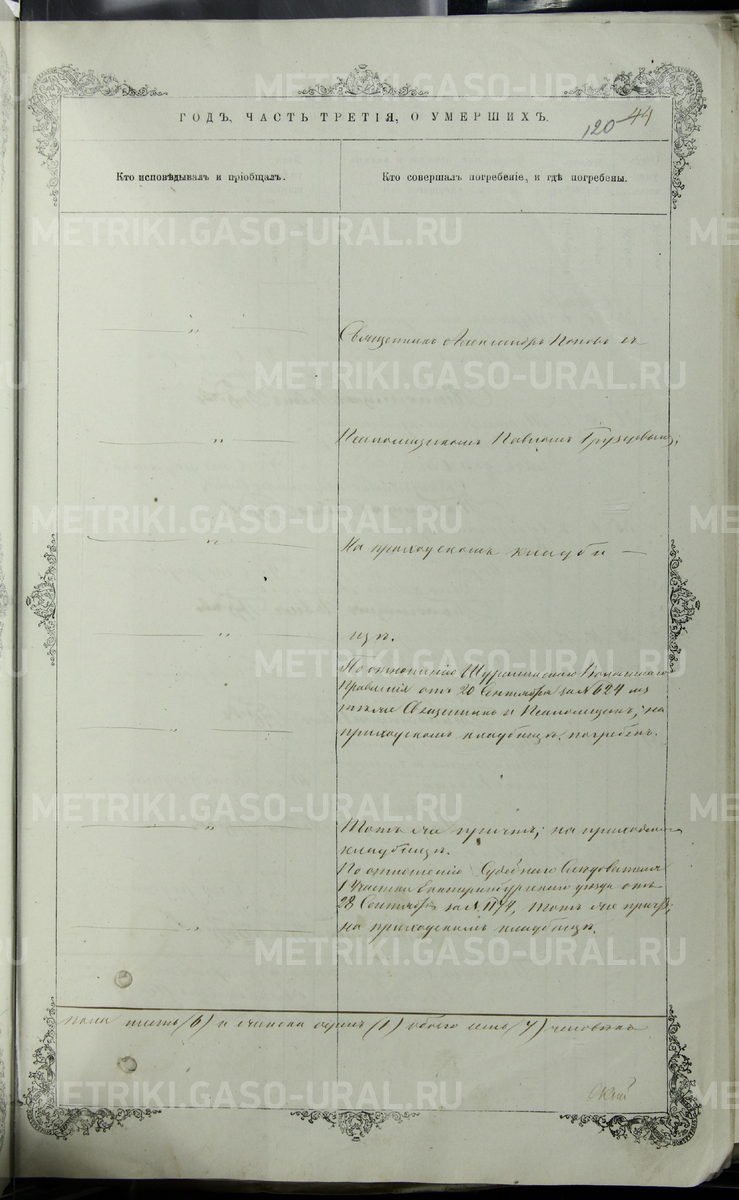 METRIKI.GASO-URAL.RU
ГОДЪ, ЧАСТЬ ТРЕТІЯ, О УМЕРШИХЪ.
120 44
Кто исповѣдывалъ и пріобщалъ.
Кто совершалъ погребеніе, и гдѣ погребены.
Священникъ Александръ Поповъ съ
Псаломщикомъ Павломъ
На приходскомъ кладби —
щѣ.
По отношенію Волостнаго
Правленія отъ 20 Сентября за № 624
Священникъ и Псаломщикъ; на
приходскомъ кладбищѣ погребенъ.
Тотъ же причтъ; на приходскомъ
кладбищѣ.
По отношенію Судебнаго Слѣдователя
1 Участка Екатеринбургскаго уѣзда отъ
28 Сентября за № 1174, Тотъ же причтъ;
на приходскомъ кладбищѣ.
пола шесть (6) и женска одинъ (1) обоего семь (7) человѣкъ